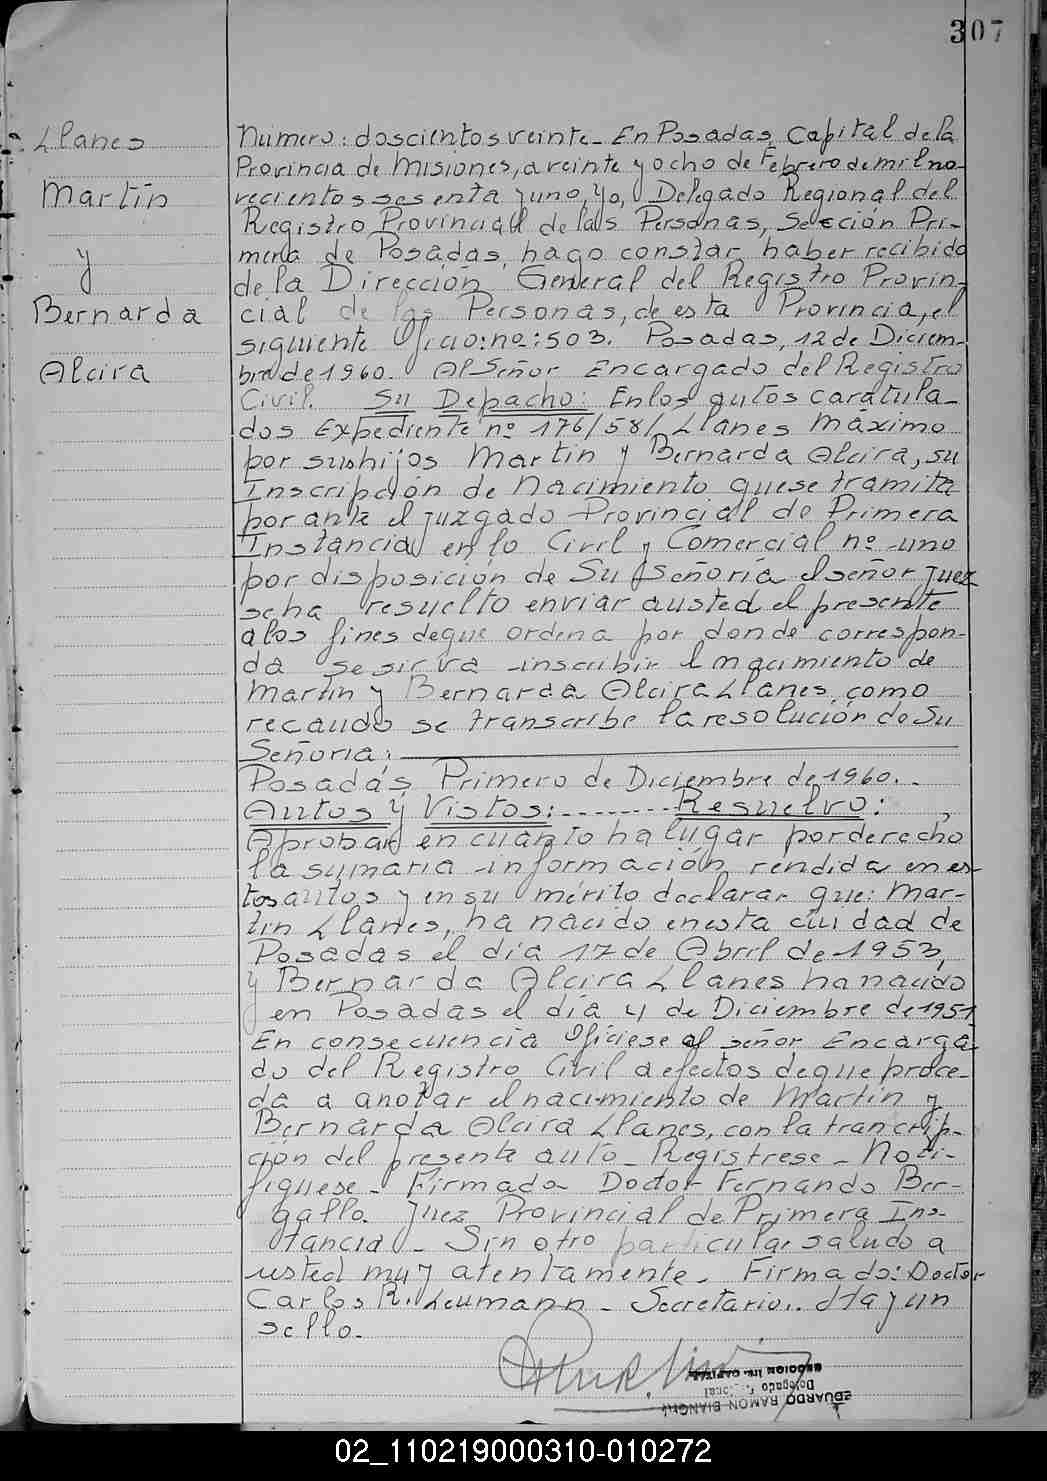 307
Llanes
Martín
y
Bernarda
Alcira
Número: doscientos veinte_ En Posadas, Capital de la
Provincia de Misiones, a veinte y ocho de Febrero de mil no-
vecientos sesenta y uno, Yo, Delegado Regional del
Registro Provincial de las Personas, Sección Pri-
mera de Posadas, hago constar haber recibido
de la Dirección General del Registro Provin-
cial de las Personas, de esta Provincia, el
siguiente Oficio: no: 503. Posadas, 12 de Diciem-
bre de 1960. Al Señor Encargado del Registro
Civil. Su Depacho: En los autos caratula-
dos Expediente nº 176/58/ Llanes Máximo
por sus hijos Martin y Bernarda Alcira, su
Inscripción de Nacimiento que se tramita
por ante el juzgado Provincial de Primera
Instancia en lo Civil y Comercial nº uno
por disposición de Su Señoría el señor Juez
se ha resuelto enviar a usted el presente
a los fines de que ordena por donde correspon-
da se sirva inscribir el nacimiento de
Martin y Bernarda Alcira Llanes, como
recaudo se transcribe la resolución de Su
Señoria:
Posadas, Primero de Diciembre de 1960.
Autos y Vistos:........ Resuelvo:
Aprobar en cuanto ha lugar por derecho
la sumaria información rendida en es-
tos autos y en su mérito declarar que: Mar-
tin Llanes, ha nacido en esta ciudad de
Posadas el día 17 de Abril de 1953,
y Bernarda Alcira Llanes ha nacido
en Posadas el día 4 de Diciembre de 1951
En consecuencia Ofíciese al señor Encarga-
do del Registro Civil a efectos de que proce-
da a anotar el nacimiento de Martin y
Bernarda Alcira Llanes, con la trancrip-
ción del presente auto_ Registrese_ Noti-
fíquese_ Firmado Doctor Fernando Ber-
gallo. Juez Provincial de Primera Ins-
tancia_ Sin otro particular saludo a
usted muy atentamente_ Firmado: Doctor
Carlos R. Leumann_ Secretario.. Hay un
sello.
EDUARDO RAMON BIANCHI
Delegado
SECCION 1ra. CAPITAL
02_110219000310-010272